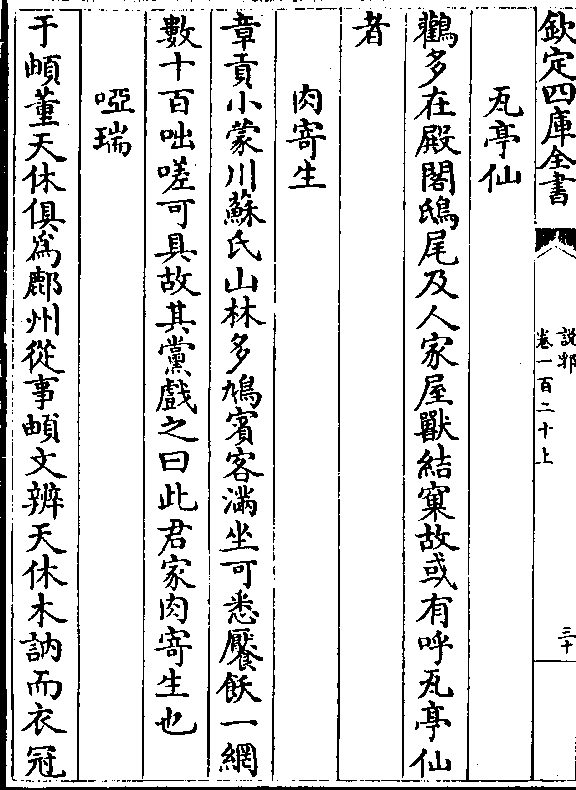 欽定四庫全書
說郛
卷一百二十上
三十
瓦亭仙
鸛多在殿閣鴟尾及人家屋獸結窠故或有呼瓦亭仙
者
肉寄生
章貢小蒙川蘇氏山林多鳩賓客滿坐可悉饜飫一網
數十百咄嗟可具故其黨戲之曰此君家肉寄生也
啞瑞
于頔董天休俱為鄜州從事頔文辨天休木訥而衣冠